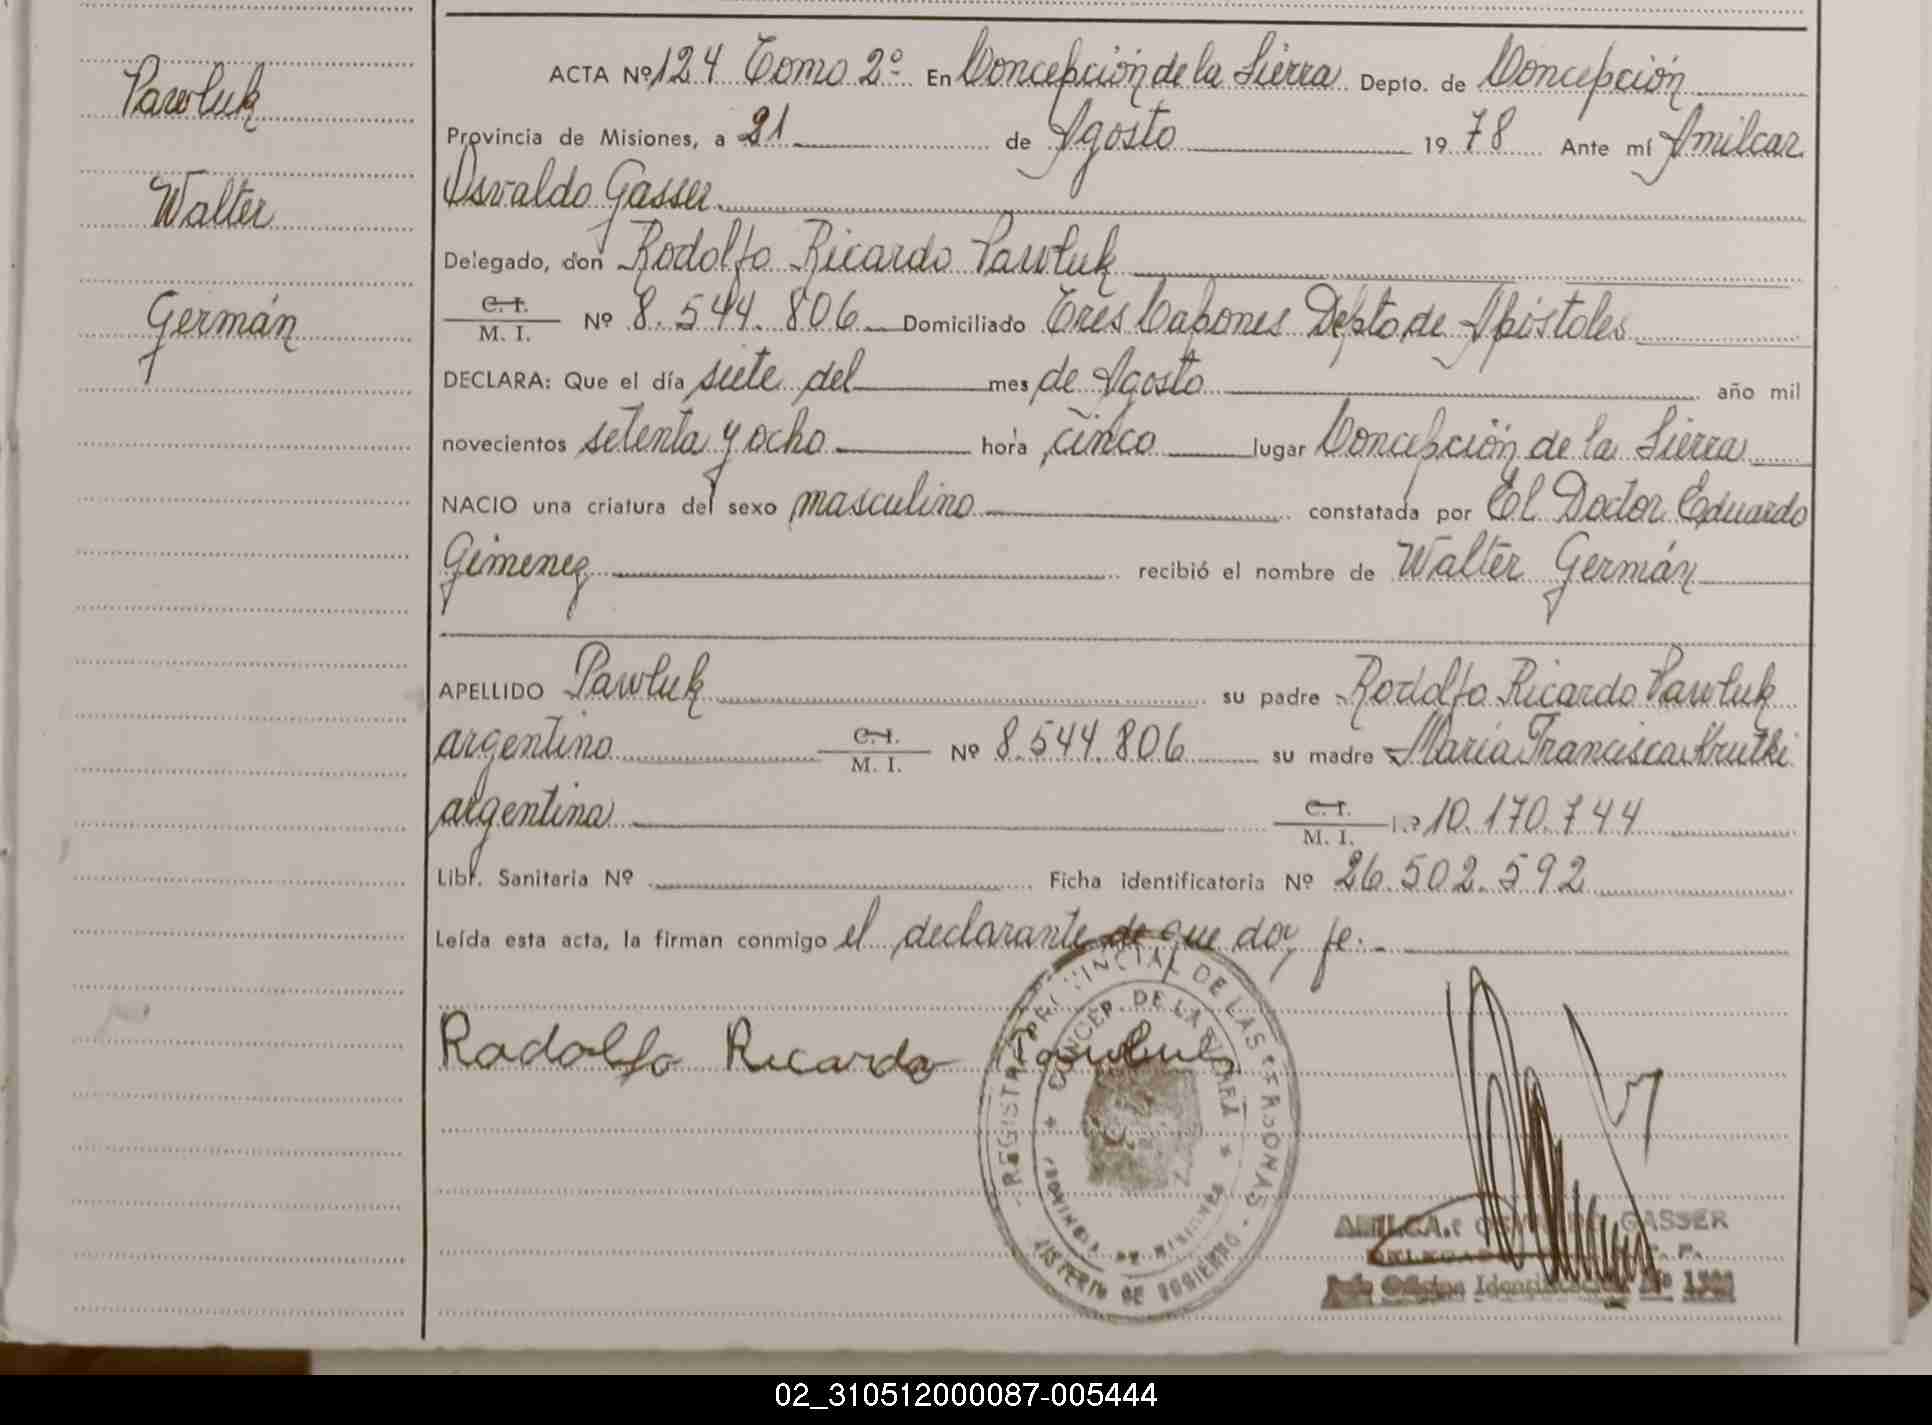 Pawluk
Walter
Germán
ACTA Nº 124 Tomo 2º En Concepción de la Sierra Depto. de Concepción
Provincia de Misiones, a 21 de Agosto 1978 Ante mí Amilcar
Osvaldo Gasser
Delegado, don Rodolfo Ricardo Pawluk
C. I.
M. I. Nº 8.544.806 Domiciliado Tres Capones Depto de Apóstoles
DECLARA: Que el día siete del mes de Agosto año mil
novecientos setenta y ocho hora cinco lugar Concepción de la Sierra
NACIO una criatura del sexo masculino constatada por El Doctor Eduardo
Gimenez recibió el nombre de Walter Germán
APELLIDO Pawluk su padre Rodolfo Ricardo Pawluk
argentino C. I.
M. I. Nº 8.544.806 su madre María Francisca
argentina C. I.
M. I. Nº 10.170.744
Libr. Sanitaria Nº Ficha identificatoria Nº 26.502.592
Leída esta acta, la firman conmigo el declarante de que doy fe.
Rodolfo Ricardo Pawluk
REGISTRO PROVINCIAL DE LAS PERSONAS
CONCEP. DE LA SIERRA
PROVINCIA DE MISIONES
MINISTERIO DE GOBIERNO
AMILCAR OSVALDO GASSER
02_310512000087-005444